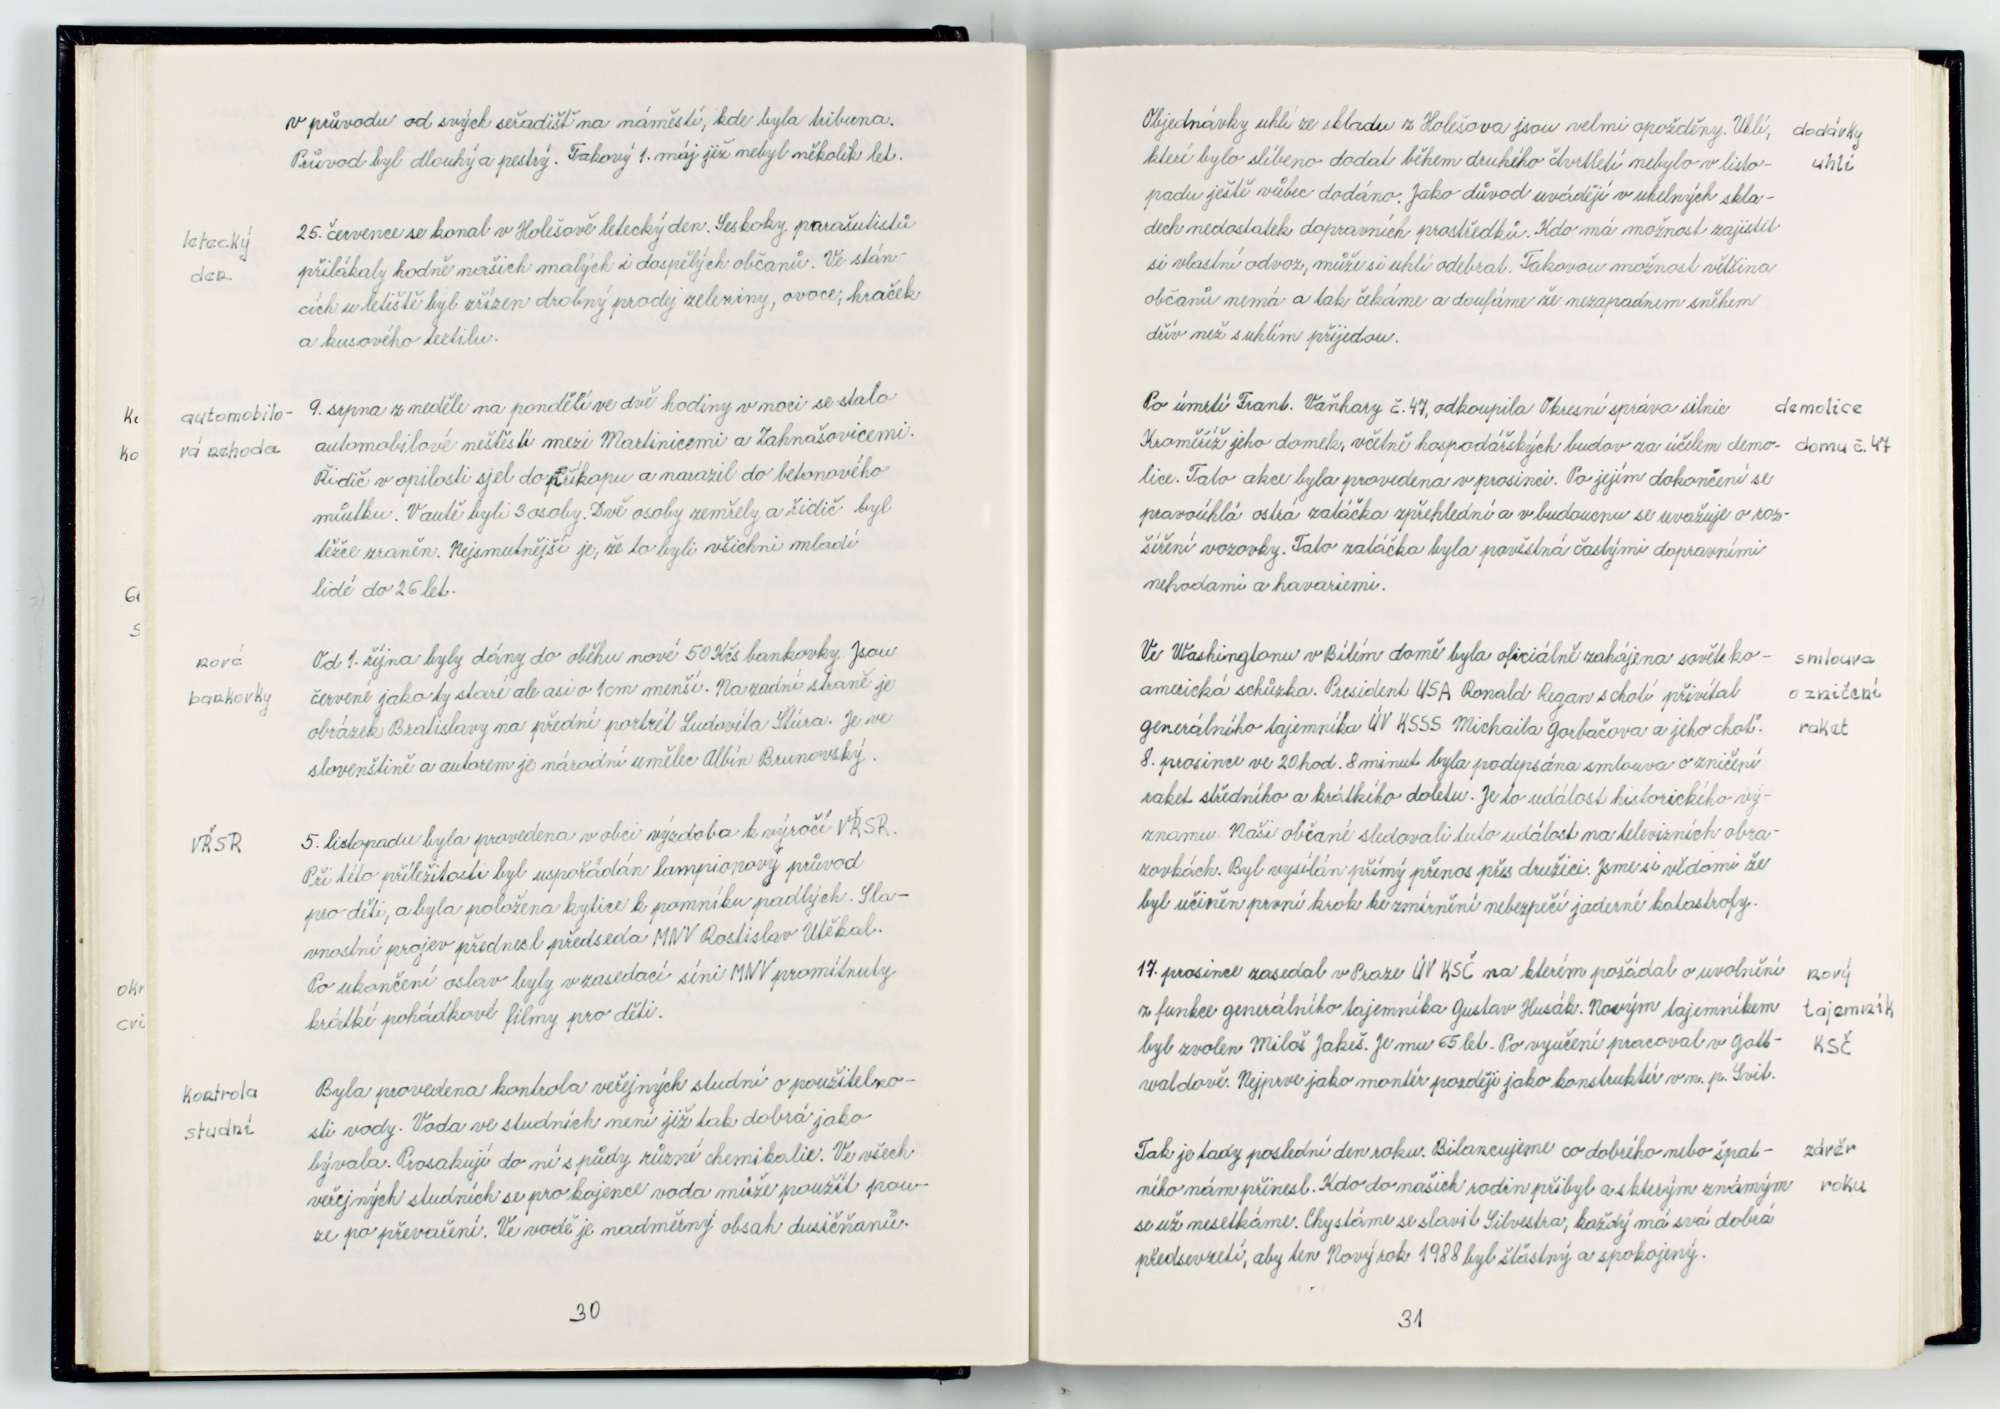 v průvodu od svých seřadišť na náměstí, kde byla tribuna.
Průvod byl dlouhý a pestrý. Takový 1. máj již nebyl několik let.
letecký
den
25. července se konal v Holešově letecký den. Seskoky parašutistů
přilákaly hodně našich malých i dospělých občanů. Ve stán-
cích u letiště byl zřízen drobný prodej zeleniny, ovoce, hraček
a kusového textilu.
automobilo-
vá nehoda
9. srpna z neděle na pondělí ve dvě hodiny v noci se stalo
automobilové neštěstí mezi Martinicemi a Zahnašovicemi.
Řidič v opilosti sjel do příkopu a narazil do betonového
můstku. V autě byli 3 osoby. Dvě osoby zemřely a řidič byl
těžce zraněn. Nejsmutnější je, že to byli všichni mladí
lidé do 26 let.
nové
bankovky
Od 1. října byly dány do oběhu nové 50 Kčs bankovky. Jsou
červené jako ty staré ale asi o 1cm menší. Na zadní straně je
obrázek Bratislavy na přední portrét Ludovíta Štúra. Je ve
slovenštině a autorem je národní umělec Albín Brunovský.
VŘSR
5. listopadu byla provedena v obci výzdoba k výročí VŘSR.
Při této příležitosti byl uspořádán lampionový průvod
pro děti, a byla položena kytice k pomníku padlých. Sla-
vnostní projev přednesl předseda MNV Rostislav Utěkal.
Po ukončení oslav byly v zasedací síni MNV promítnuty
krátké pohádkové filmy pro děti.
Kontrola
studní
Byla provedena kontrola veřejných studní o použitelno-
sti vody. Voda ve studních není již tak dobrá jako
bývala. Prosakují do ní s půdy různé chemikalie. Ve všech
veřejných studních se pro kojence voda může použít pou-
ze po převaření. Ve vodě je nadměrný obsah dusičňanů.
30
Ke
ko
Ge
S
okr
cvi
Objednávky uhlí ze skladu z Holešova jsou velmi opožděny. Uhlí,
které bylo slíbeno dodat během druhého čtvrtletí nebylo v listo-
padu ještě vůbec dodáno. Jako důvod uvádějí v uhelných skla-
dech nedostatek dopravních prostředků. Kdo má možnost zajistit
si vlastní odvoz, může si uhlí odebrat. Takovou možnost většina
občanů nemá a tak čekáme a doufáme že nezapadnem sněhem
dřív než s uhlím přijedou.
dodávky
uhlí
Po úmrtí Frant. Vaňhary č. 47, odkoupila Okresní správa silnic
Kroměříž jeho domek, včetně hospodářských budov za účelem demo-
lice. Tato akce byla provedena v prosinci. Po jejím dokončení se
pravoúhlá ostrá zatáčka zpřehlední a v budoucnu se uvažuje o roz-
šíření vozovky. Tato zatáčka byla pověstná častými dopravními
nehodami a havariemi.
demolice
domu č. 47
Ve Washingtonu v Bílém domě byla oficiálně zahájena sovětsko-
americká schůzka. President USA Ronald Regan s chotí přivítal
generálního tajemníka ÚV KSSS Michaila Gorbačova a jeho choť.
8. prosince ve 20 hod. 8 minut byla podepsána smlouva o zničení
raket středního a krátkého doletu. Je to událost historického vý-
znamu. Naši občané sledovali tuto událost na televizních obra-
zovkách. Byl vysílán přímý přenos přes družici. Jsme si vědomi že
byl učiněn první krok ke zmírnění nebezpečí jaderné katastrofy.
smlouva
o zničení
raket
17. prosince zasedal v Praze ÚV KSČ na kterém požádal o uvolnění
z funkce generálního tajemníka Gustav Husák. Novým tajemníkem
byl zvolen Miloš Jakeš. Je mu 65 let. Po vyučení pracoval v Gott-
waldově. Nejprve jako montér později jako konstruktér v n. p. Svit.
nový
tajemník
KSČ
Tak je tady poslední den roku. Bilancujeme co dobrého nebo špat-
ného nám přinesl. Kdo do našich rodin přibyl a s kterým známým
se už nesetkáme. Chystáme se slavit Silvestra, každý má svá dobrá
předsevzetí, aby ten Nový rok 1988 byl šťastný a spokojený.
závěr
roku
31